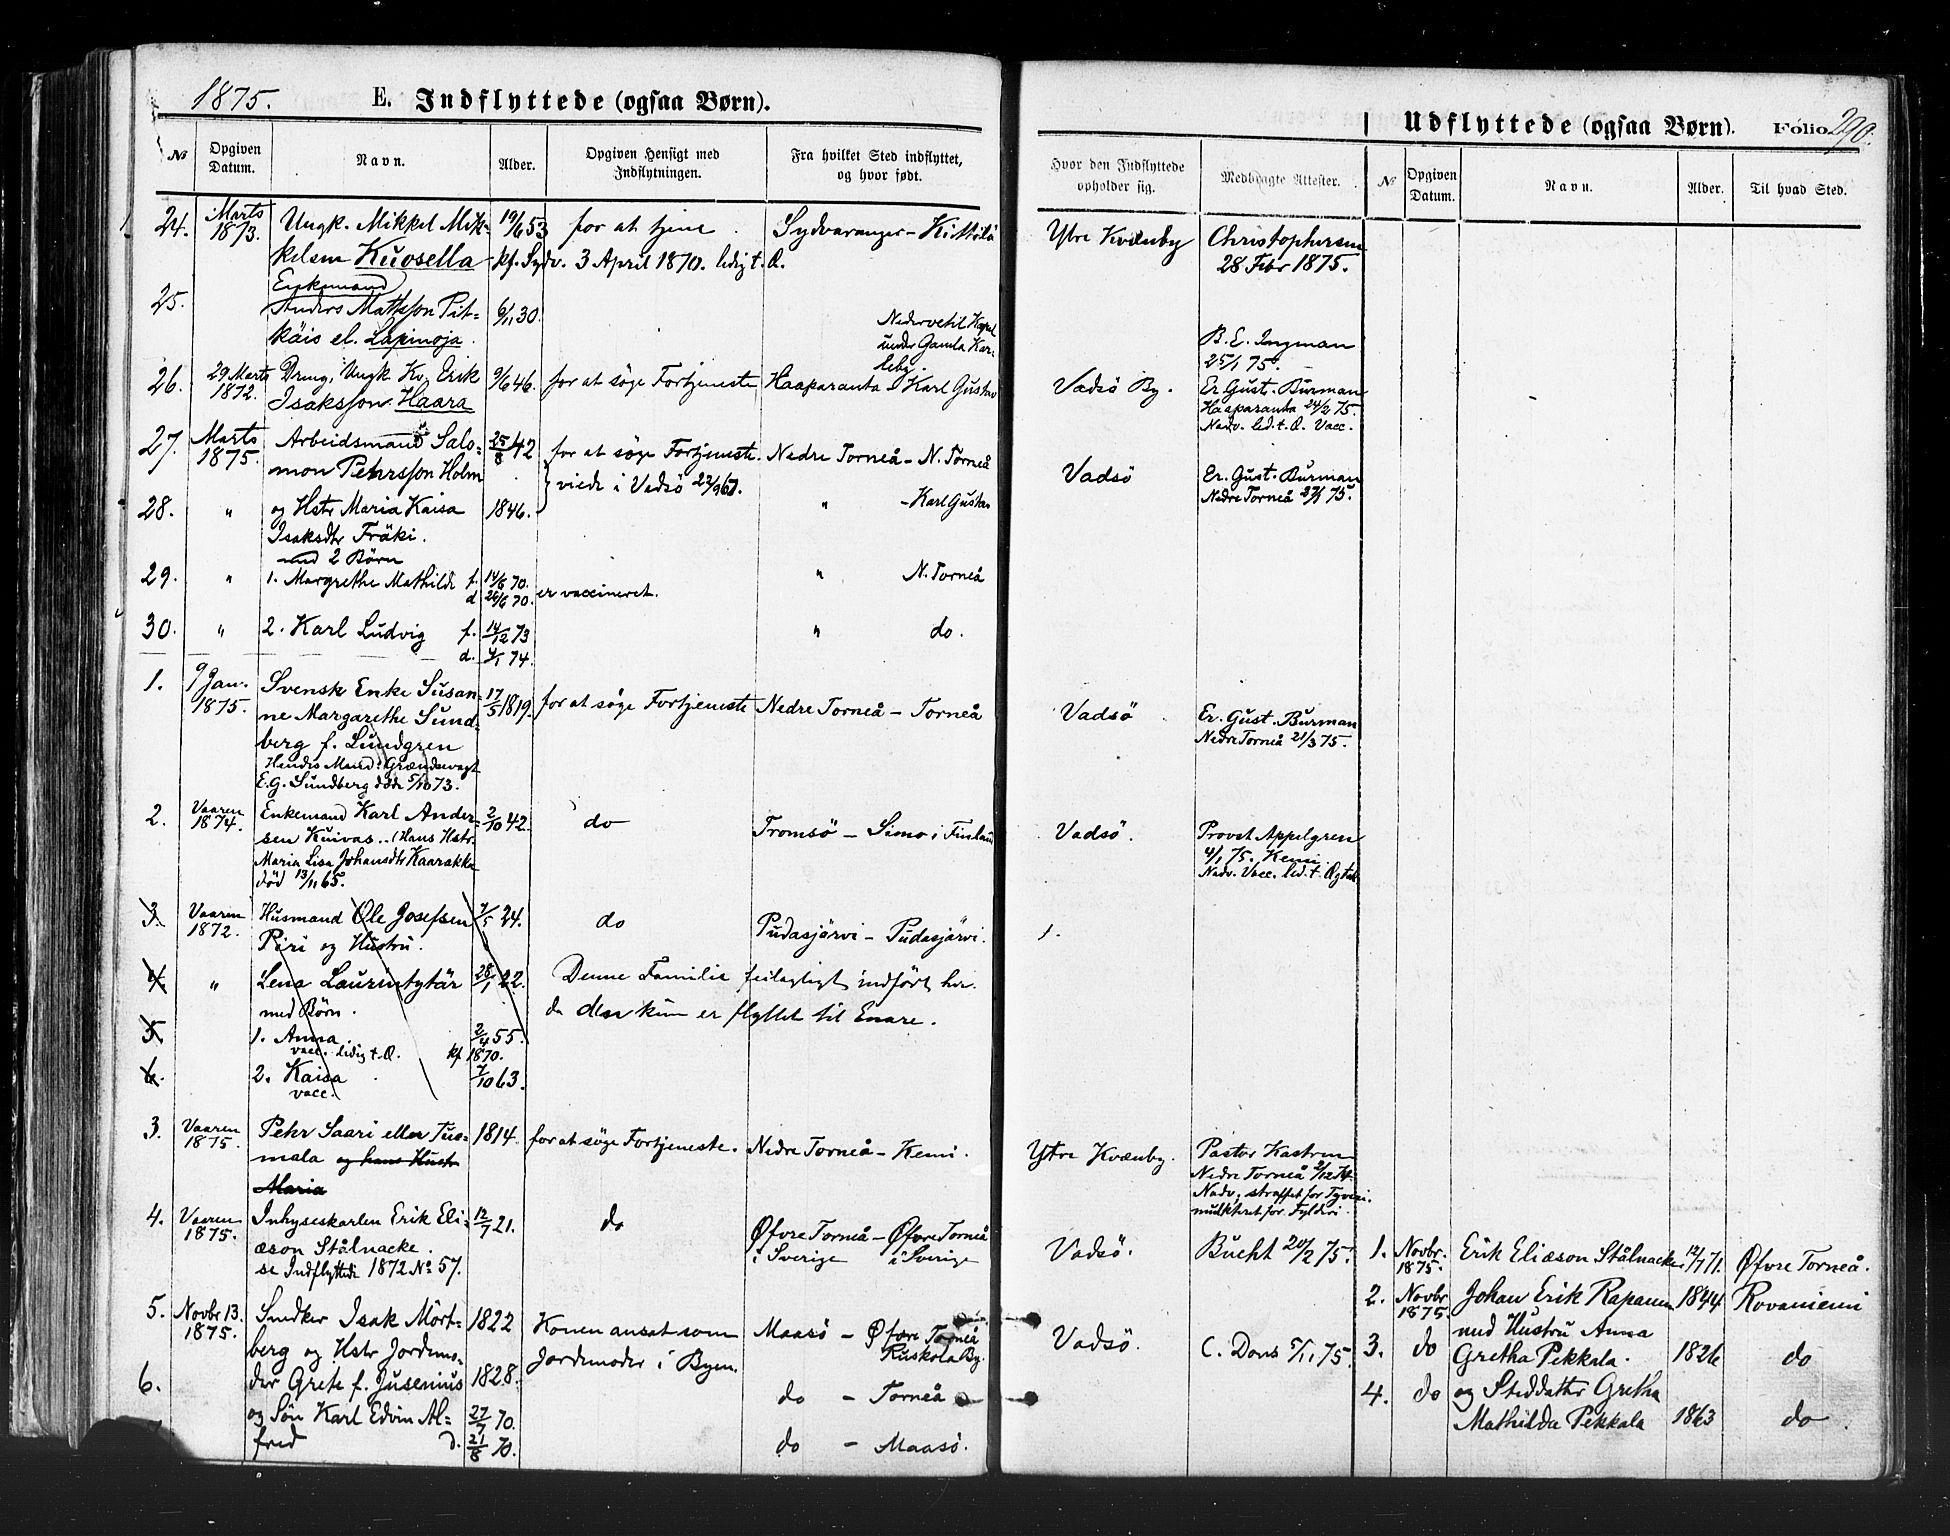 1875.
E. Indflyttede (ogsaa Børn).
№
Opgiven Datum.
Navn.
Alder.
Opgiven Hensigt med Indflytningen.
Fra hvilket Sted indflyttet, og hvor født.
Udflyttede (ogsaa Børn). Folio 290.
Hvor den Indflyttede opholder sig.
Medbragte Attester.
№
Opgiven Datum.
Navn.
Alder.
Til hvad Sted.
24. Marts 1873. Ungk. Mikkel Mik- 19/6 53 for at tjene Sydvaranger – Kittilä Ytre Kvænby Christophersen
kelsen Kuosella kf. Sydv. 3 April 1870. ledig t. Æ. 28 Febr 1875.
Enkemand
25. Anders Mattsson Pit- 6/11 30. Nedervetil Kapel
käis el. Lapinoja. under Gamla Kar- B. E. Ingman
leby. 25/1 75.
26. 29 Marts 1872. Dreng, Ungk. Kv. Erik 9/6 46. for at søge Fortjeneste Haaparanta – Karl Gustav Vadsö By. Er. Gust. Burman
Isaksson Haara Haaparanta 24/2 75.
Nadv. led. t. Æ. Vacc.
27. Marts 1875. Arbeidsmand Salo- 25/8 42 for at søge Fortjeneste. Nedre Torneå – N. Torneå Vadsö Er. Gust. Burman
mon Pehrsson Holm viede i Vadsö 22/9 67. Nedre Torneå 27/1 75.
28. " og Hstr Maria Kaisa 1846. " – Karl Gustav
Isaksdtr Fräki.
med 2 Børn
29. " 1. Margrethe Mathilde f. 14/6 70. " N. Torneå
d. 26/6 70. er vaccineret.
30. " 2. Karl Ludvig f. 14/12 73 " do.
d. 4/1 74.
1. 9 Jan. 1875. Svensk Enke Susan- 17/5 1819. for at søge Fortjeneste Nedre Torneå – Torneå Vadsö Er. Gust. Burman
ne Margarethe Sund- Nedre Torneå 21/3 75.
berg f. Lundgren
Hendes Mand: Grændsevagt
E. G. Sundberg döde 5/10 73.
2. Vaaren 1874. Enkemand Karl Ander- 2/10 42. do Tromsö – Simo i Finland Vadsö. Provst Appelgren
sen Kuivas. (Hans Hstr. 4/1 75. Kemi.
Maria Lisa Johansdtr Kaarakka Nadv. Vacc. led. t. Ægtsk
död 13/11 65.
3. Vaaren 1872. Husmand Ole Josefsen 7/5 24. do Pudasjärvi – Pudasjärvi. 1.
Piri og Hustru.
4. " Lena Laurintytär 28/1 22. Denne Familie feilagtigt indført her.
med Børn. da den kun er flyttet til Enare.
5. 1. Anna 2/4 55.
vacc. ledig t. Æ. kf 1870.
6. 2. Kaisa 7/10 63.
vacc.
3. Vaaren 1875. Pehr Saari eller Tuo- 1814. for at søge Fortjeneste. Nedre Torneå – Kemi. Ytre Kvænby. Pastor Kastren
mala og hans Hustr Nedre Torneå 3/12 74
Maria Nadv, straffet for Tyveri.
mulkteret for Fylderi.
4. Vaaren 1875. Inhyseskarlen Erik Eli- 12/7 21. do Øfvre Torneå – Øfvre Torneå
æson Stålnacke. i Sverige i Sverige Vadsö. Bucht 20/2 75.
se Indflyttede 1872 № 57.
1. Novbr. 1875. Erik Eliæson Stålnacke 12/7 71. Øfvre Torneå.
2. Novbr 1875. Johan Erik Rapanen 1844. Rovaniemi
med Hustru Anna
3. do Gretha Pekkala. 1826 do
4. do og Steddatter Gretha
Mathilda Pekkala 1863 do
5. Novbr 13. 1875. Snedker Isak Mört- 1822 Konen ansat som Maasö – Øfvre Torneå
berg og Hstr Jordemo- Jordemoder i Byen. Ruskola By. Vadsö. C. Dons 5/11 75.
6. der Grete f. Jusenius 1828. do – Torneå
og Søn Karl Edvin Al- 27/7 70.
fred d. 21/8 70. do – Maasö.